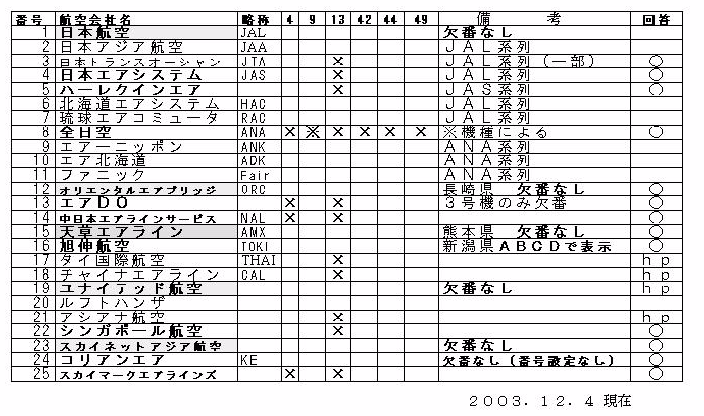 番号 航空会社名 略称 4 9 13 42 44 49 備考 回答
1 日本航空 JAL 欠番なし
2 日本アジア航空 JAA ＪＡＬ系列
3 日本トランスオーシャン JTA × ＪＡＬ系列（一部） ○
4 日本エアシステム JAS × ＪＡＬ系列 ○
5 ハーレクインエア × ＪＡＳ系列 ○
6 北海道エアシステム HAC ＪＡＬ系列
7 琉球エアコミュータ RAC ＪＡＬ系列
8 全日空 ANA × ※ × × × × ※機種による ○
9 エアーニッポン ANK ＡＮＡ系列
10 エア北海道 ADK ＡＮＡ系列
11 ファニック Fair ＡＮＡ系列
12 オリエンタルエアブリッジ ORC 長崎県 欠番なし ○
13 エアＤＯ × × ３号機のみ欠番 ○
14 中日本エアラインサービス NAL × × ○
15 天草エアライン AMX 熊本県 欠番なし ○
16 旭伸航空 TOKI 新潟県ＡＢＣＤで表示 ○
17 タイ国際航空 THAI × ｈｐ
18 チャイナエアライン CAL × ｈｐ
19 ユナイテッド航空 欠番なし ｈｐ
20 ルフトハンザ
21 アシアナ航空 × ｈｐ
22 シンガポール航空 × ○
23 スカイネットアジア航空 欠番なし ○
24 コリアンエア KE 欠番なし（番号設定なし） ○
25 スカイマークエアラインズ × × ○
２００３．１２．４ 現在